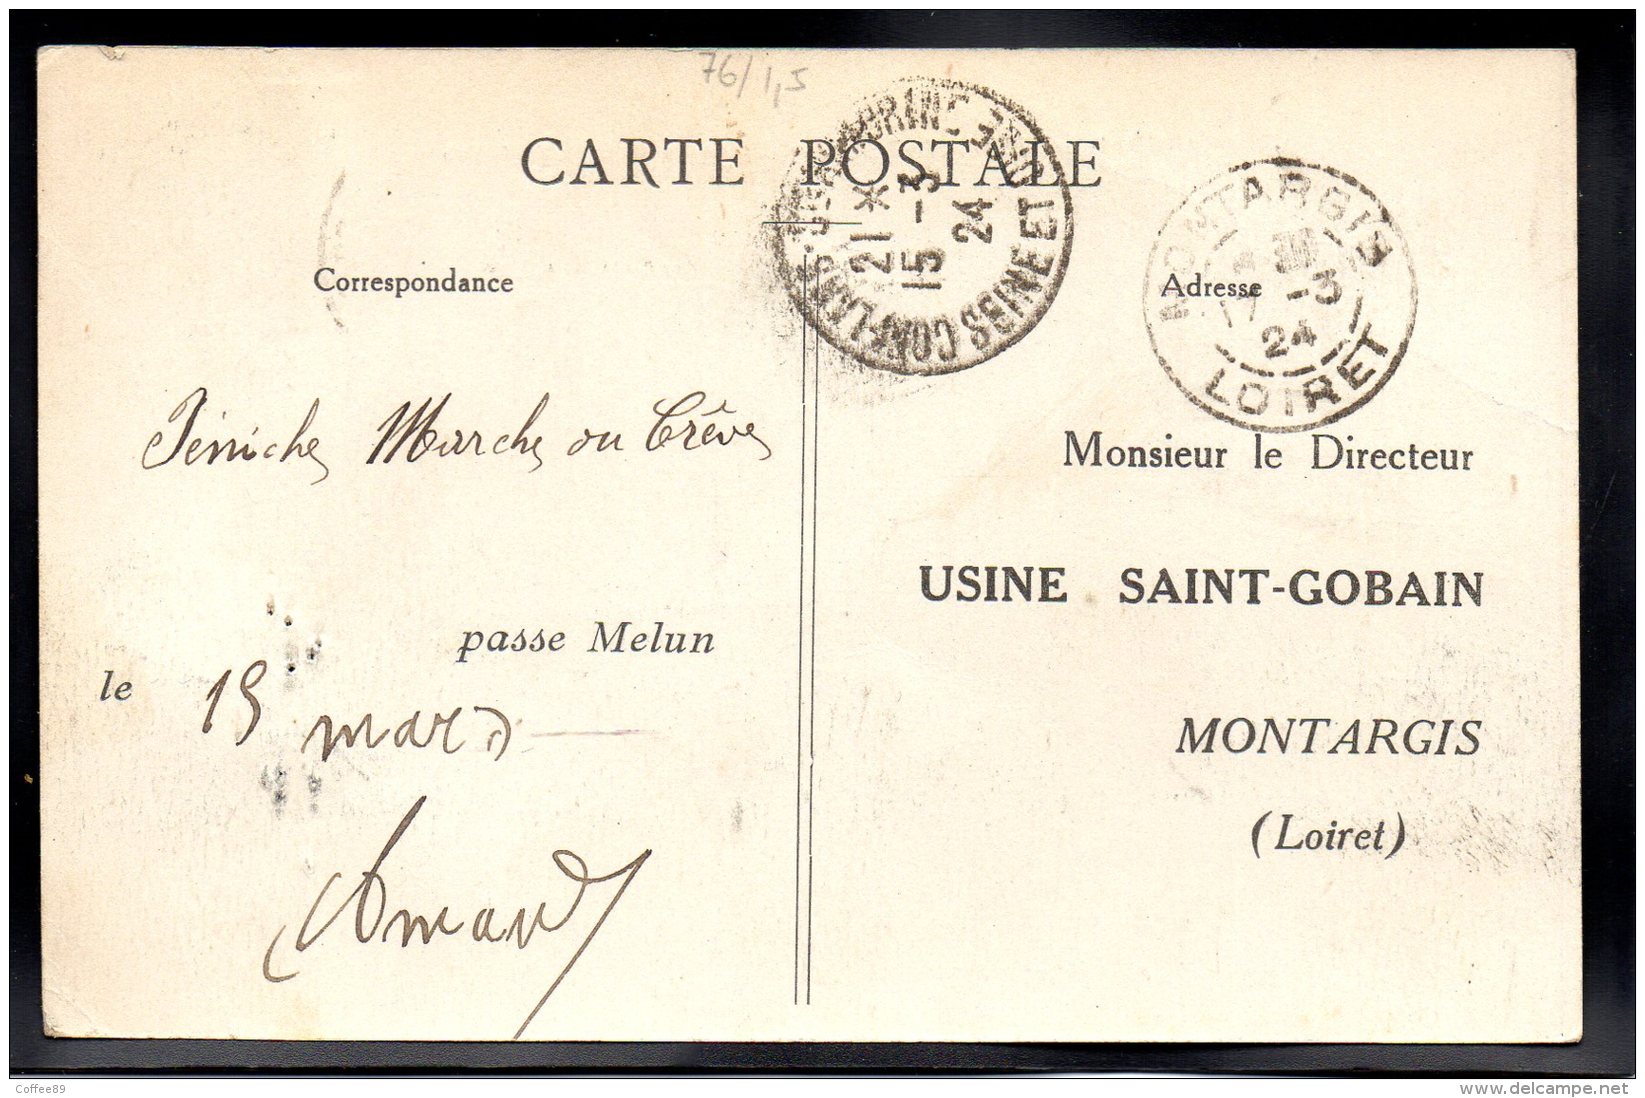 76/1,5
CARTE POSTALE
SEINE ET OISE
21 *
15 -3
24
MONTARGIS
-3
24
LOIRET
Correspondance
Adresse
Péniche Marche ou Crève
Monsieur le Directeur
USINE SAINT-GOBAIN
passe Melun
le 15 mars
MONTARGIS
(Loiret)
Armand
Coffee89
delcampe.net